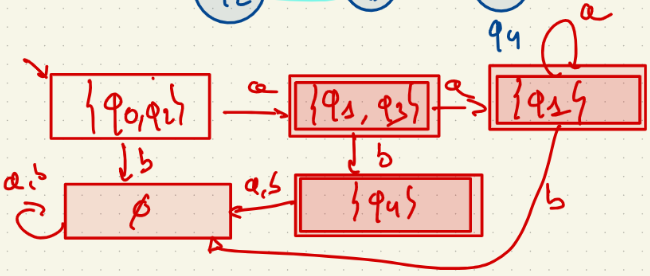 q2
q4
a
{q0,q2}
a
{q1,q3}
a
{q1}
b
b
a,b
∅
a,b
{q4}
b